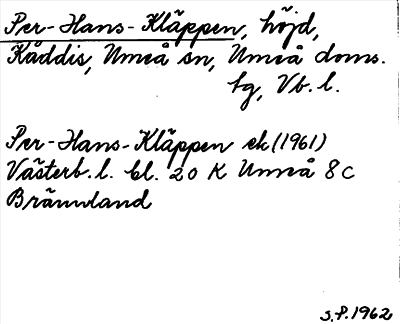 Per-Hans-Kläppen, höjd,
Kåddis, Umeå sn, Umeå doms.
tg, Vb. l.
Per-Hans-Kläppen ek (1961)
Västerb. l. bl. 20 K Umeå 8 C
Brännland
S.P. 1962